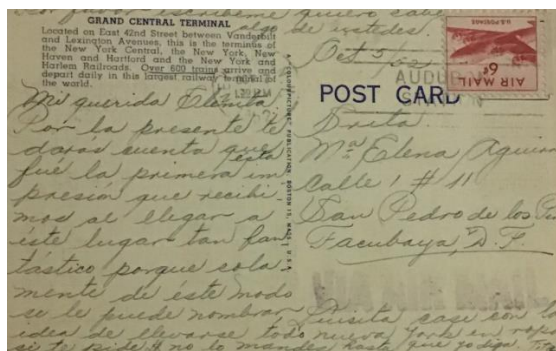 quiero
algo de ustedes.
GRAND CENTRAL TERMINAL
Located on East 42nd Street between Vanderbilt
and Lexington Avenues, this is the terminus of
the New York Central, the New York, New
Haven and Hartford and the New York and
Harlem Railroads. Over 600 trains arrive and
depart daily in this largest railway terminal of
the world.
Mi querida Elenita
Por la presente te
daras cuenta que
ésta
fué la primera im
presión que recibi
mos al llegar a
éste lugar tan fan
tástico porque sola
mente de éste modo
se le puede nombrar
idea de llevarse todo nueva York en
si te pide $ no lo mandes hasta que yo diga.
A COLOURPICTURE PUBLICATION BOSTON 15, MASS., U.S.A.
Oct 5/
AUDUBON
U.S. POSTAGE
6¢
AIR MAIL
POST CARD
Srita
Ma. Elena
Calle 1 # 11
San Pedro de los
Tacubaya, D.F.
Luisita casi con la